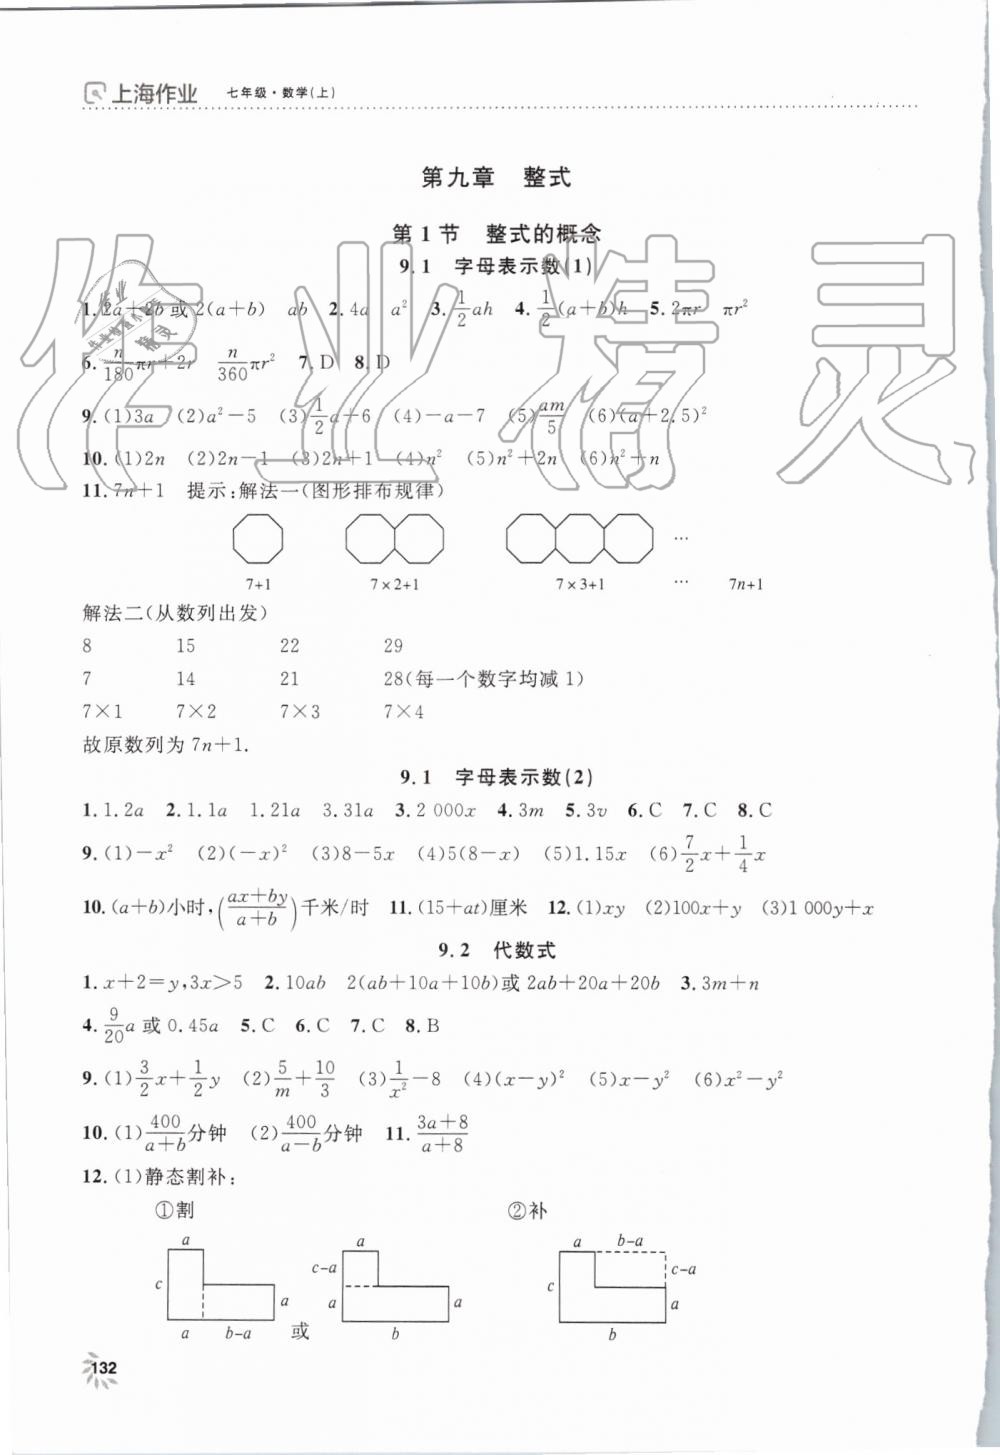 上海作业 七年级·数学(上)
第九章 整式
第1节 整式的概念
9.1 字母表示数(1)
1. 2a+2b或2(a+b) ab 2. 4a a² 3. 1/2 ah 4. 1/2(a+b)h 5. 2πr πr²
6. n/180 πr+2r n/360 πr² 7. D 8. D
9. (1)3a (2)a²-5 (3)1/2 a+6 (4)-a-7 (5)am/5 (6)(a+2.5)²
10. (1)2n (2)2n-1 (3)2n+1 (4)n² (5)n²+2n (6)n²+n
11. 7n+1 提示:解法一(图形排布规律)
…
7+1 7×2+1 7×3+1 … 7n+1
解法二(从数列出发)
8 15 22 29
7 14 21 28(每一个数字均减1)
7×1 7×2 7×3 7×4
故原数列为7n+1.
9.1 字母表示数(2)
1. 1.2a 2. 1.1a 1.21a 3.31a 3. 2 000x 4. 3m 5. 3v 6. C 7. C 8. C
9. (1)-x² (2)(-x)² (3)8-5x (4)5(8-x) (5)1.15x (6)7/2 x+1/4 x
10. (a+b)小时,((ax+by)/(a+b))千米/时 11. (15+at)厘米 12. (1)xy (2)100x+y (3)1 000y+x
9.2 代数式
1. x+2=y,3x>5 2. 10ab 2(ab+10a+10b)或2ab+20a+20b 3. 3m+n
4. 9/20 a或0.45a 5. C 6. C 7. C 8. B
9. (1)3/2 x+1/2 y (2)5/m+10/3 (3)1/x²-8 (4)(x-y)² (5)x-y² (6)x²-y²
10. (1)400/(a+b)分钟 (2)400/(a-b)分钟 11. (3a+8)/(a+8)
12. (1)静态割补:
①割 ②补
a a a b-a
c c-a c c-a
a a a a
a b-a 或 b b
132
作业精灵